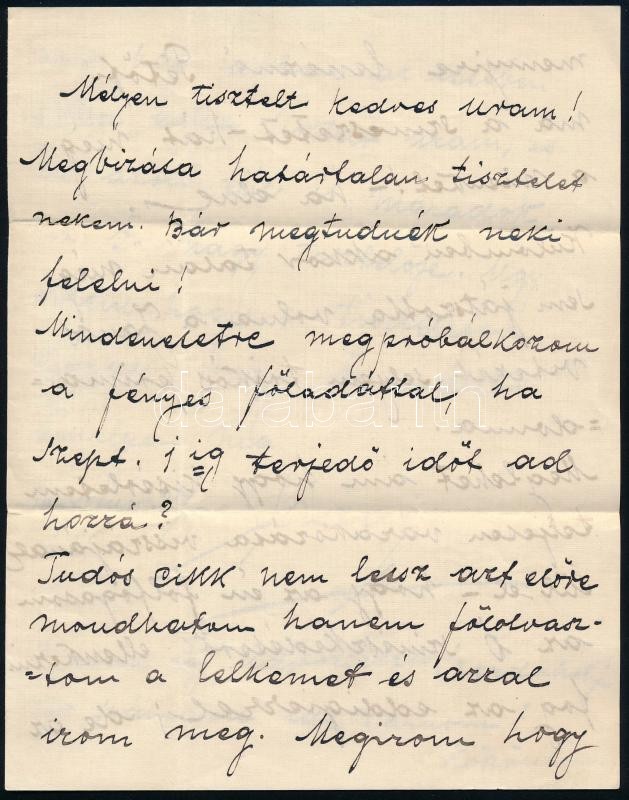 Mélyen tisztelt kedves uram!
Megbizása határtalan tisztelet
nekem. Bár megtudnék neki
felelni!
Mindenesetre megpróbálkozom
a fényes föladáttal, ha
Szept. 1 ig terjedő időt ad
hozzá?
Tudós cikk nem lessz azt előre
mondhatom hanem fölolvasz-
=tom a lelkemet és azzal
irom meg. Megirom hogy
darabanth